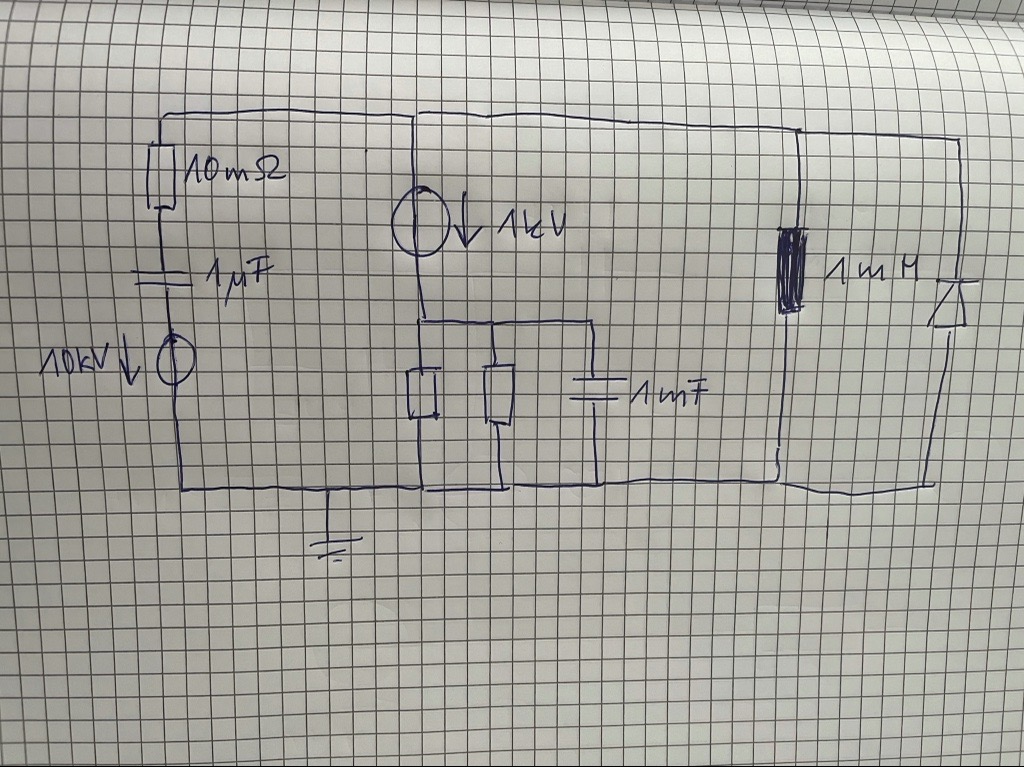 10mΩ
1µF
10kV
1kV
1mF
1mH